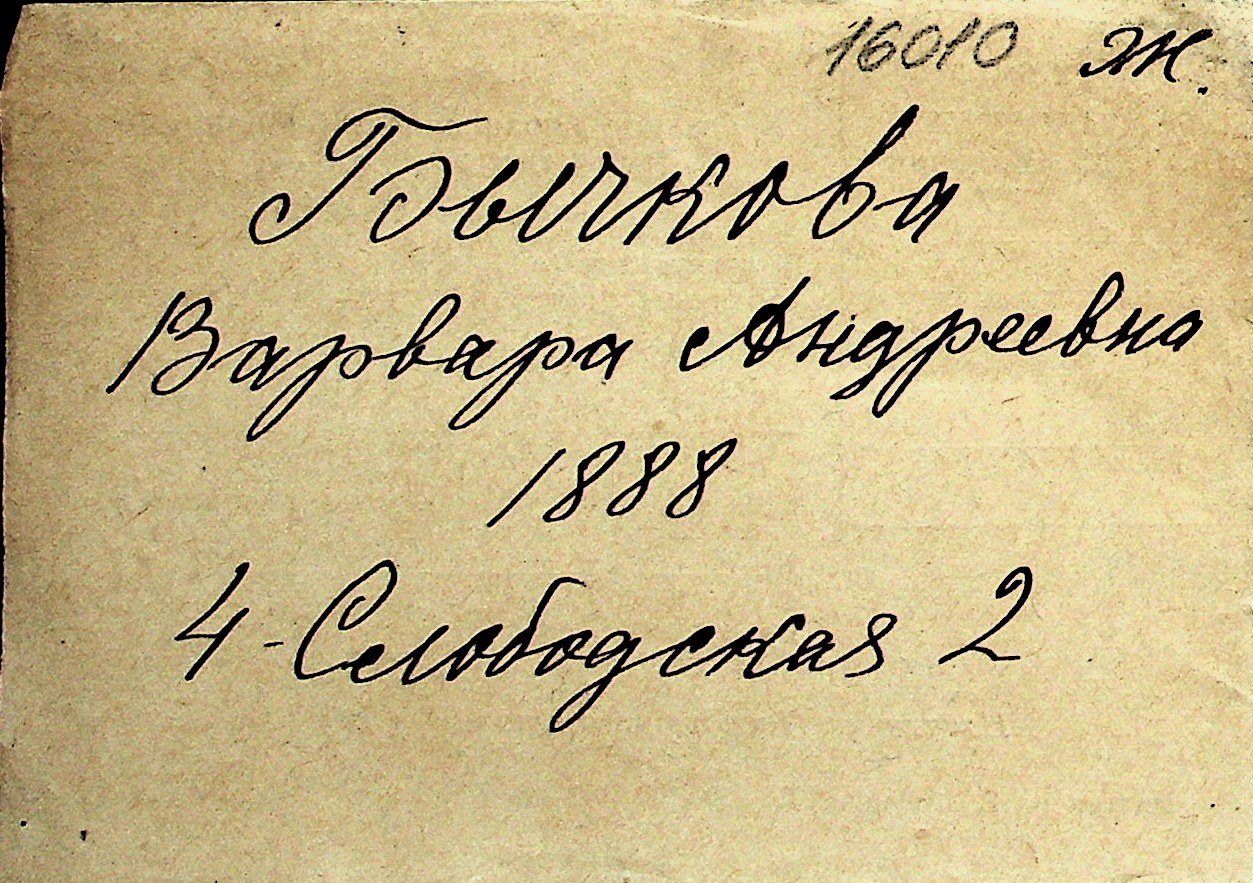 16010 Ж.
Бычкова
Варвара Андреевна
1888
4-Слободская 2